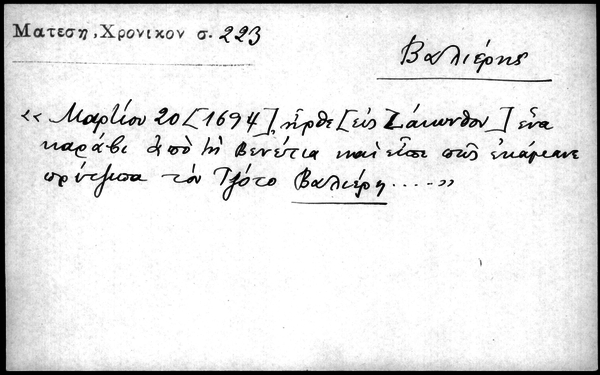 Ματεση, Χρονικον σ. 223
Βαλιέρης
«Μαρτίου 20 [1694], ἦρθε [εἰς Ζάκυνθον] ἕνα
καράβι ἀπὸ τὴ Βενέτια καὶ εἶπε πῶς ἐκάμανε
πρίντζιπα τὸν Τζότο Βαλιέρη .....»